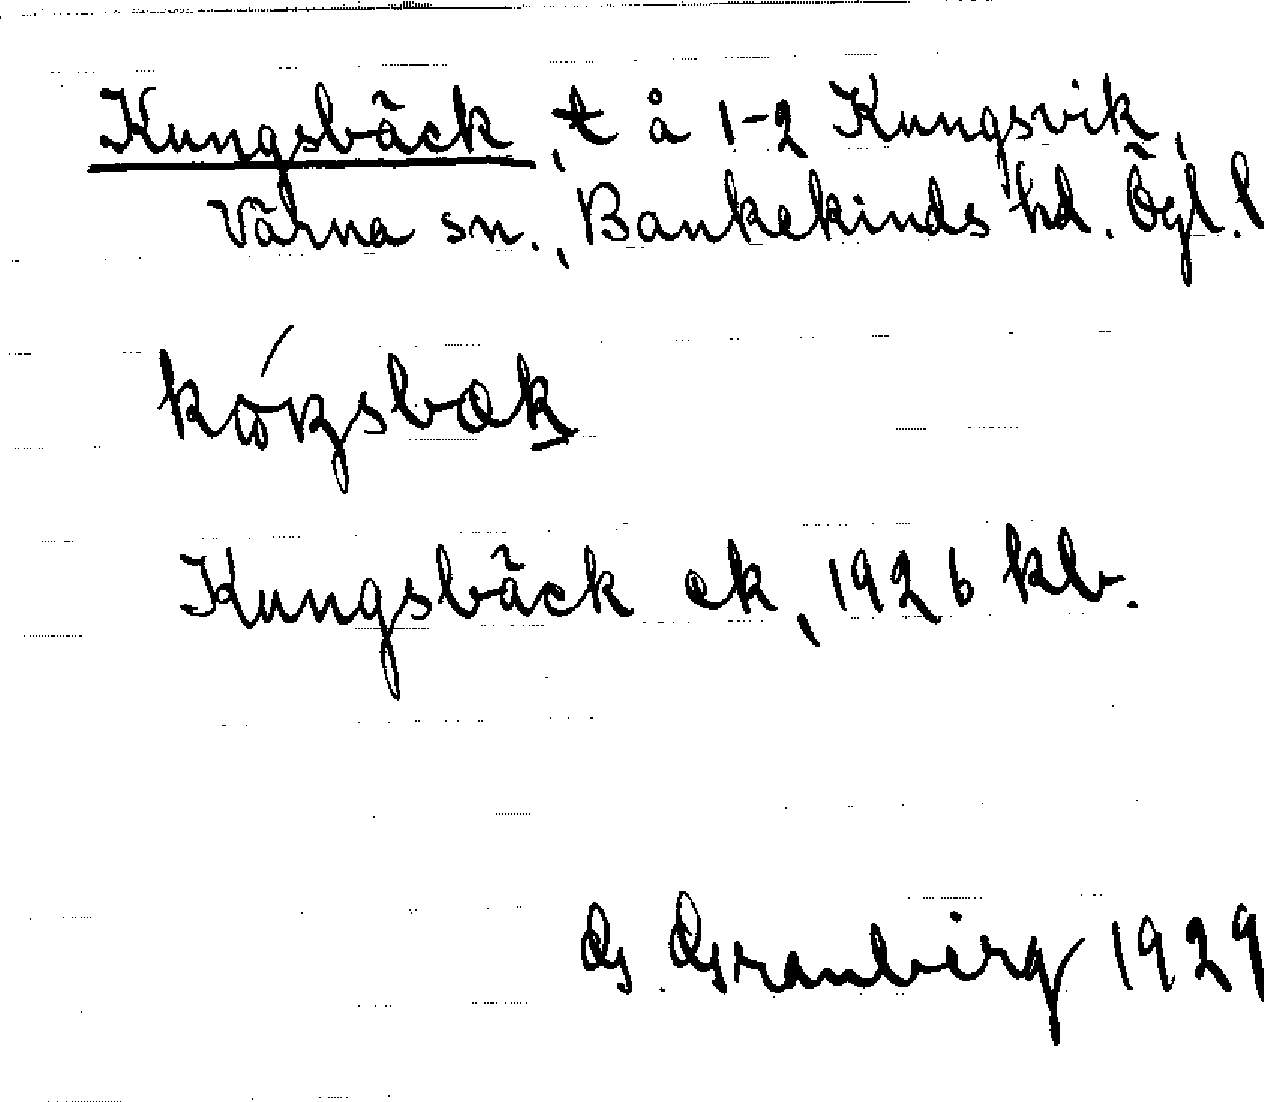 Kungsbäck, t å 1-2 Kungsvik,
Värna sn., Bankekinds hd. Ögl. l
Kungsbäck ek, 1926 kb.
G. Granberg 1929